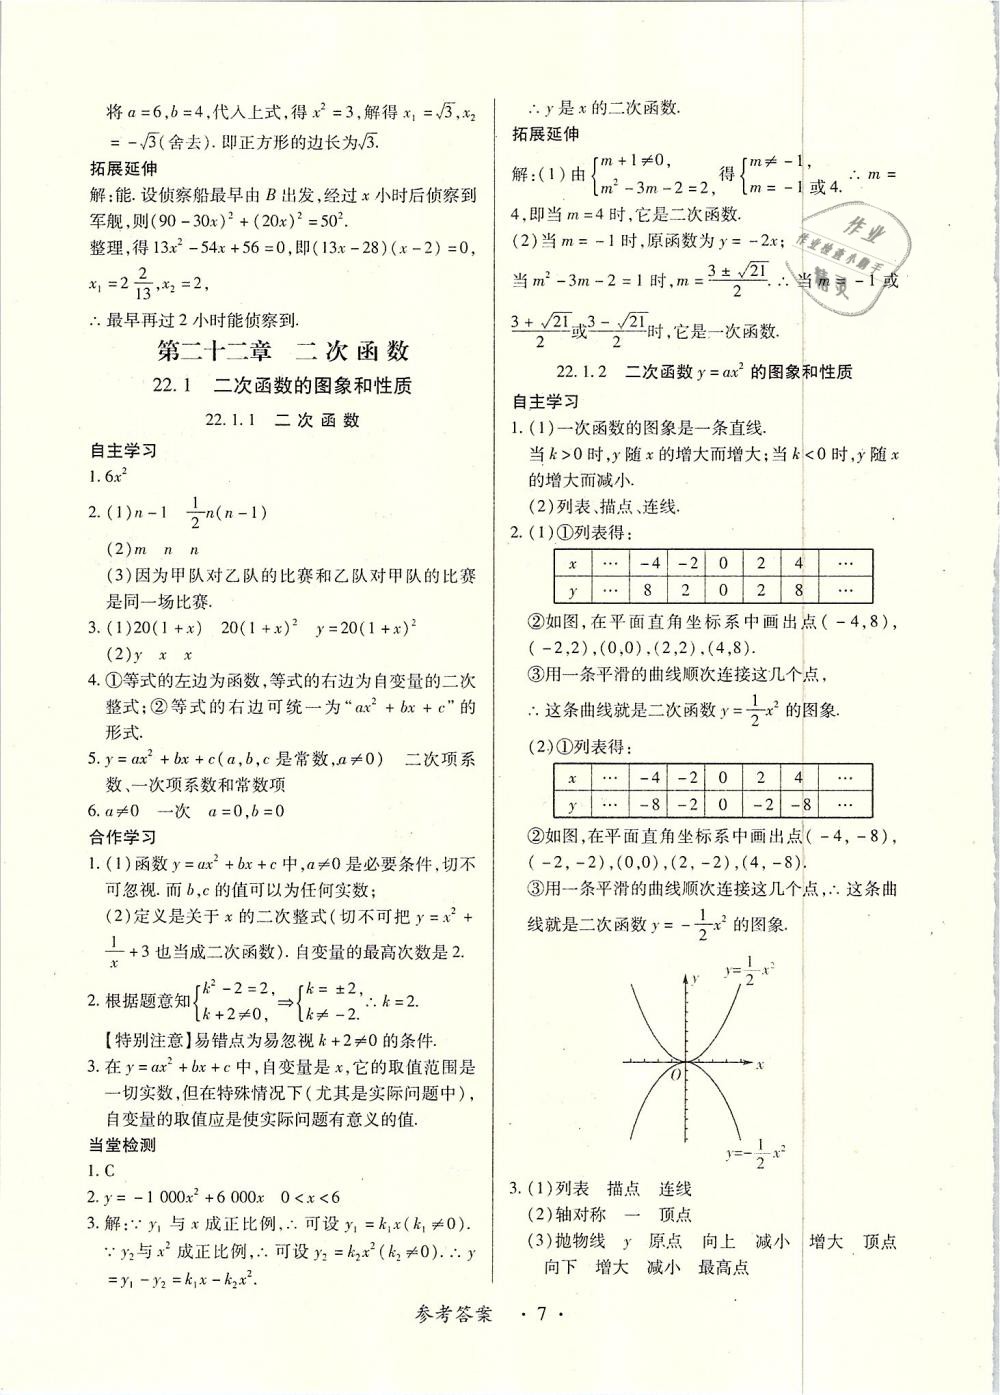 将a=6,b=4,代入上式,得x²=3,解得x₁=√3,x₂
=-√3(舍去).即正方形的边长为√3.
拓展延伸
解:能.设侦察船最早由B出发,经过x小时后侦察到
军舰,则(90-30x)²+(20x)²=50².
整理,得13x²-54x+56=0,即(13x-28)(x-2)=0,
x₁=2 2/13,x₂=2,
∴最早再过2小时能侦察到.
第二十二章 二次函数
22.1 二次函数的图象和性质
22.1.1 二次函数
自主学习
1.6x²
2.(1)n-1 1/2n(n-1)
(2)m n n
(3)因为甲队对乙队的比赛和乙队对甲队的比赛
是同一场比赛.
3.(1)20(1+x) 20(1+x)² y=20(1+x)²
(2)y x x
4.①等式的左边为函数,等式的右边为自变量的二次
整式;②等式的右边可统一为“ax²+bx+c”的
形式.
5.y=ax²+bx+c(a,b,c是常数,a≠0) 二次项系
数、一次项系数和常数项
6.a≠0 一次 a=0,b=0
合作学习
1.(1)函数y=ax²+bx+c中,a≠0是必要条件,切不
可忽视.而b,c的值可以为任何实数;
(2)定义是关于x的二次整式(切不可把y=x²+
1/x+3也当成二次函数).自变量的最高次数是2.
2.根据题意知{k²-2=2, k+2≠0, ⇒{k=±2, k≠-2. ∴k=2.
【特别注意】易错点为易忽视k+2≠0的条件.
3.在y=ax²+bx+c中,自变量是x,它的取值范围是
一切实数,但在特殊情况下(尤其是实际问题中),
自变量的取值应是使实际问题有意义的值.
当堂检测
1.C
2.y=-1 000x²+6 000x 0<x<6
3.解:∵y₁与x成正比例,∴可设y₁=k₁x(k₁≠0).
∵y₂与x²成正比例,∴可设y₂=k₂x²(k₂≠0).∴y
=y₁-y₂=k₁x-k₂x².
∴y是x的二次函数.
拓展延伸
解:(1)由{m+1≠0, m²-3m-2=2, 得{m≠-1, m=-1或4. ∴m=
4,即当m=4时,它是二次函数.
(2)当m=-1时,原函数为y=-2x;
当m²-3m-2=1时,m=(3±√21)/2.∴当m=-1或
(3+√21)/2或(3-√21)/2时,它是一次函数.
22.1.2 二次函数y=ax²的图象和性质
自主学习
1.(1)一次函数的图象是一条直线.
当k>0时,y随x的增大而增大;当k<0时,y随x
的增大而减小.
(2)列表、描点、连线.
2.(1)①列表得:
x … -4 -2 0 2 4 …
y … 8 2 0 2 8 …
②如图,在平面直角坐标系中画出点(-4,8),
(-2,2),(0,0),(2,2),(4,8).
③用一条平滑的曲线顺次连接这几个点,
∴这条曲线就是二次函数y=1/2x²的图象.
(2)①列表得:
x … -4 -2 0 2 4 …
y … -8 -2 0 -2 -8 …
②如图,在平面直角坐标系中画出点(-4,-8),
(-2,-2),(0,0),(2,-2),(4,-8).
③用一条平滑的曲线顺次连接这几个点,∴这条曲
线就是二次函数y=-1/2x²的图象.
y
y=1/2x²
x
O
y=-1/2x²
3.(1)列表 描点 连线
(2)轴对称 一 顶点
(3)抛物线 y 原点 向上 减小 增大 顶点
向下 增大 减小 最高点
参考答案 ·7·
作业
作业检查小助手
精灵